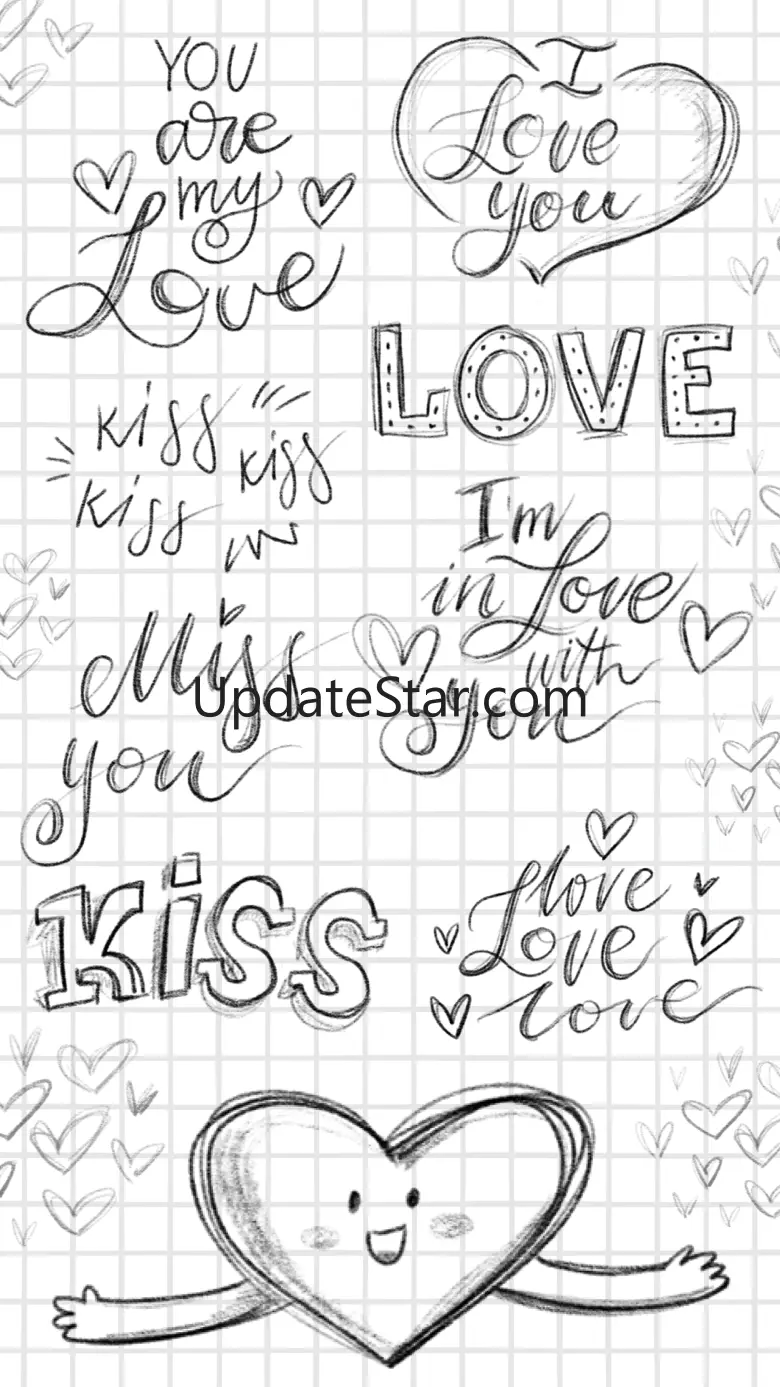 YOU
are
my
Love
I
Love
you
LOVE
Kiss
Kiss
Kiss
I'm
in Love
with
you
Miss
you
UpdateStar.com
Kiss
love
Love
love